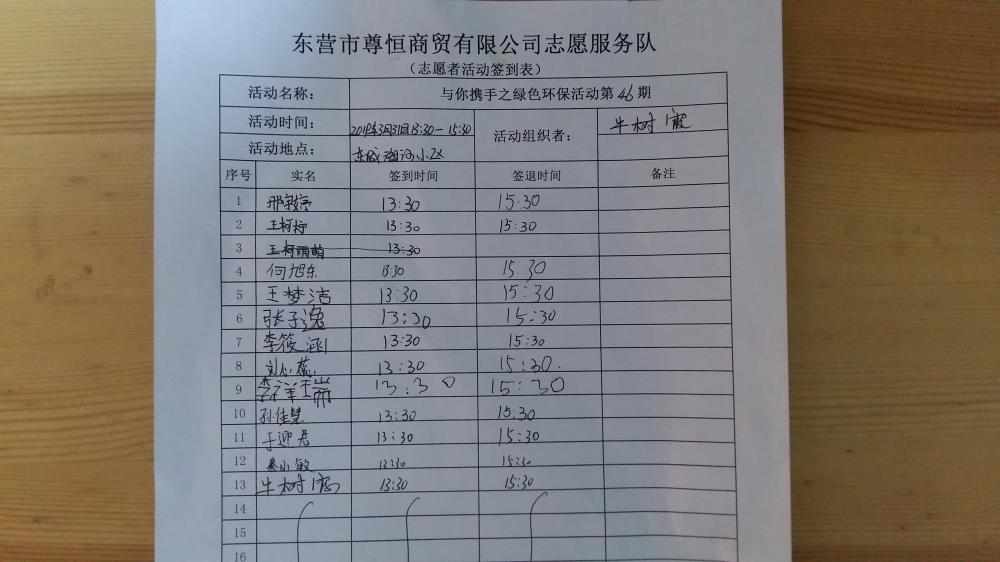 东营市尊恒商贸有限公司志愿服务队
（志愿者活动签到表）
活动名称： 与你携手之绿色环保活动第46期
活动时间： 2019年3月31日13:30-15:30 活动组织者： 牛树
活动地点： 东城 小区
序号 实名 签到时间 签退时间 备注
1 13:30 15:30
2 王柯 13:30 15:30
3 王柯雨萌 13:30
4 何旭东 13:30 15:30
5 王梦洁 13:30 15:30
6 张子逸 13:30 15:30
7 李筱涵 13:30 15:30
8 刘心蕊 13:30 15:30
9 李祥瑞 13:30 15:30
10 孙佳慧 13:30 15:30
11 于迎君 13:30 15:30
12 秦小敏 13:30 15:30
13 牛树 13:30 15:30
14
15
16